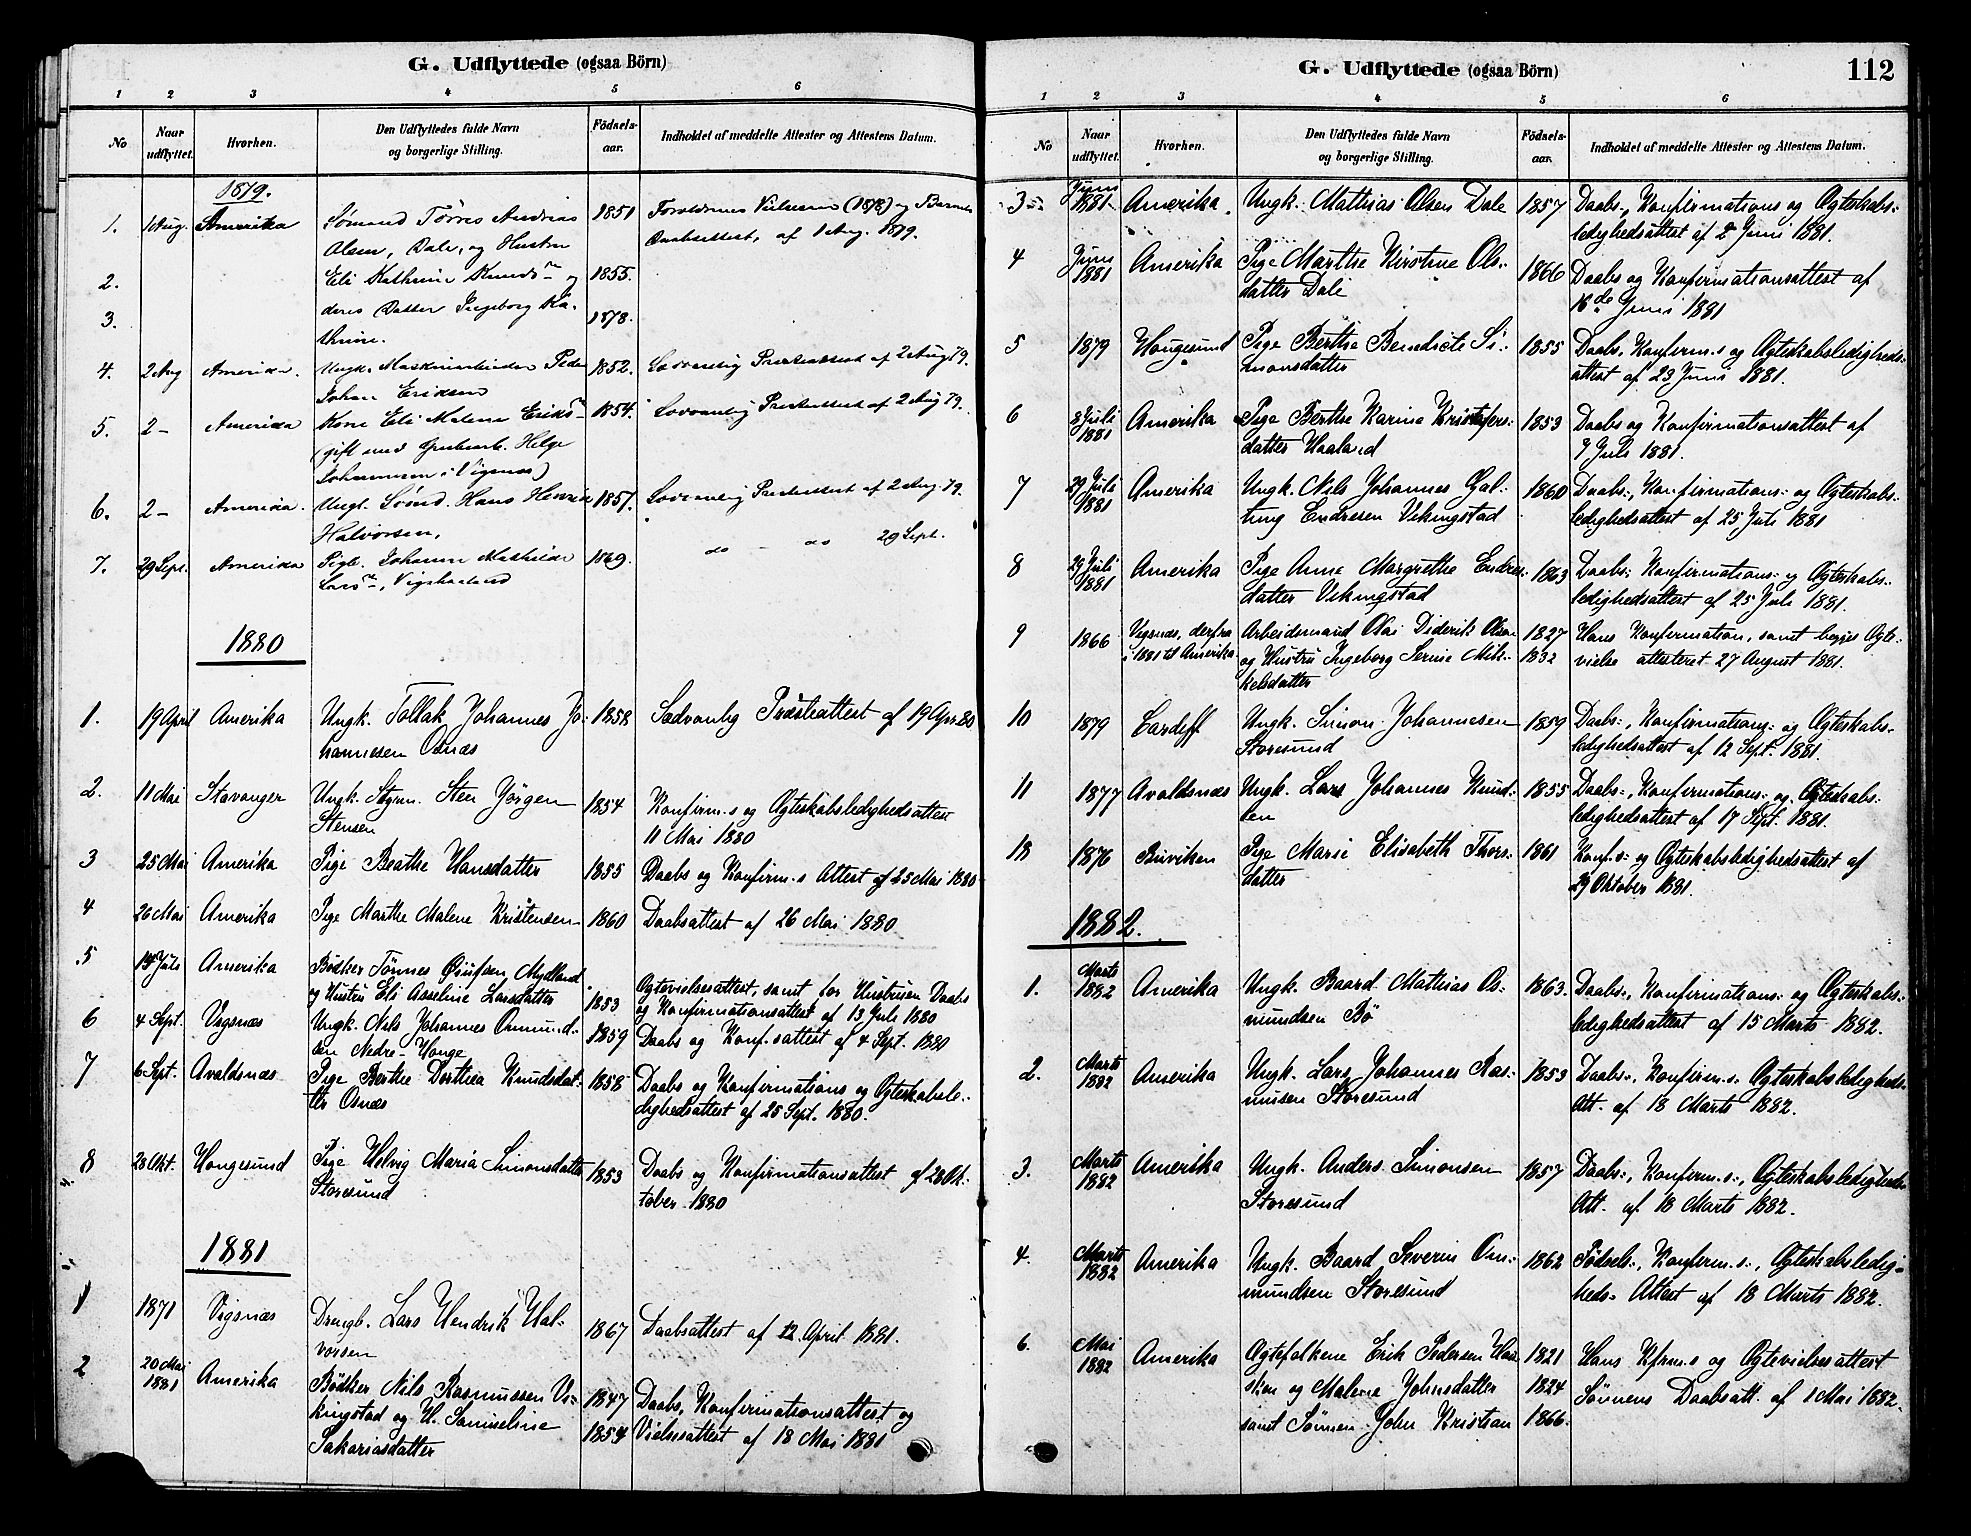 G. Udflyttede (ogsaa Börn)
1 2 3 4 5 6
No
Naar udflyttet.
Hvorhen.
Den Udflyttedes fulde Navn
og borgerlige Stilling.
Födsels-
aar.
Indholdet af meddelte Attester og Attestens Datum.
1879.
1. 1 Aug. Amerika Sømand Tørres Andreas 1851 Forældrenes Vielsesattest (1878) og Barnets
Olsen, Dale, og Hustru Daabsattest, af 1 Aug. 1879.
2. Eli Kathrine Knudsn og 1855.
3. deres Datter Ingeborg Ka- 1878.
thrine.
4. 2 Aug Amerika. Ungk. Peder 1852. Sædvanlig Præsteattest af 2 Aug 79.
Johan Eriksen
5. 2 - Amerika Kone Eli Malene Eriksn 1854. Sædvanlig Præsteattest af 2 Aug 79.
(gift med Grubearb. Helge
Johannesen i Vigsnæs)
6. 2 - Amerika. Ungk. Sømd. Hans Henrik 1857. Sædvanlig Præsteattest af 2 Aug. 79.
Halvorsen,
7. 29 Sept. Amerika Johanne Mathilde 1869. do - do 29 Sept.
Larsn, Vigshaaland
1880
1. 19 April Amerika Ungk. Tollak Johannes Jo- 1858 Sædvanlig Præsteattest af 19 Apr. 80
hannessen Osnæs
2. 11 Mai Stavanger Ungk. Styrm. Sten Jörgen 1854 Konfirm.s og Ægteskabsledighedsattest
Stensen 11 Mai 1880
3 25 Mai Amerika Pige Beathe Hansdatter 1855 Daabs og Konfirm.s Attest af 25 Mai 1880
4 26 Mai Amerika Pige Marthe Malene Kristensen 1860 Daabsattest af 26 Mai 1880
5 Juli Amerika Bödker Tönnes Mydland
og Hustru Eli Asseline Larsdatter 1853 Ægtevielsesattest, samt for Hustruen Daabs
og Konfirmationsattest af 13 Juli 1880
6 4 Sept. Vigsnæs Ungk. Nils Johannes Osmund- 1859 Daabs og Konf.sattest af 4 Sept. 1880
sen Nedre-Hauge
7 6 Sept. Avaldsnæs Pige Berthe Dorthea Knudsdat- 1858 Daabs og Konfirmations og Ægteskabsle-
ter Osnæs dighedsattest af 25 Sept. 1880.
8 28 Okt. Haugesund Pige Helvig Maria Simonsdatter 1853 Daabs og Konfirmationsattest af 28 Ok-
Storesund tober 1880
1881
1 1871 Vigsnæs Drengb. Lars Hendrik Hal- 1867 Daabsattest af 12 April 1881.
vorsen
2 20 Mai 1881 Amerika Bödker Nils Rasmussen Vi- 1847 Daabs, Konfirmationsattest og
kingstad og H. Samueline 1854 Vielsesattest af 18 Mai 1881
Sakariasdatter
G. Udflyttede (ogsaa Börn) 112
1 2 3 4 5 6
No
Naar udflyttet.
Hvorhen.
Den Udflyttedes fulde Navn
og borgerlige Stilling.
Födsels-
aar.
Indholdet af meddelte Attester og Attestens Datum.
3 Juni 1881 Amerika. Ungk. Mathias Olsen Dale 1857 Daabs-, Konfirmations og Ægteskabs-
ledighedsattest af 2 Juni 1881.
4 Juni 1881 Amerika Pige Marthe Kirstine Ols- 1866 Daabs og Konfirmationsattest af
datter Dale 16de Juni 1881
5 1879 Haugesund Pige Berthe Benedicte Si- 1855 Daabs, Konfirm.s og Ægteskabsledigheds-
monsdatter attest af 23 Juni 1881.
6 8 Juli 1881 Amerika Pige Berthe Karine Kristofers- 1853 Daabs og Konfirmationsattest af
datter Haaland 7 Juli 1881.
7 29 Juli 1881 Amerika Ungk. Nils Johannes Gal- 1860 Daabs-, Konfirmations- og Ægteskabs-
tung Endresen Vikingstad ledighedsattest af 25 Juli 1881
8 29 Juli 1881 Amerika Pige Anne Margrethe Endres- 1863 Daabs- Konfirmations- og Ægteskabs-
datter Vikingstad ledighedsattest af 25 Juli 1881.
9 1866 Vigsnæs, derfra Arbeidsmand Olai Diderik Olsen 1827 Hans Konfirmation, samt begges Ægte-
i 1881 til Amerika. og Hustru Ingeborg Serine Mik- 1832 vielse attesteret 27 August 1881.
kelsdatter
10 1879 Cardiff Ungk. Simon Johannesen 1859 Daabs-, Konfirmations- og Ægteskabs-
Storesund ledighedsattest af 12 Sept. 1881.
11 1877 Avaldsnæs Ungk. Lars Johannes Knud- 1855 Daabs-, Konfirmations- og Ægteskabs-
sen ledighedsattest af 17 Sept. 1881.
1876 Pige Marie Elisabeth Thors- 1861 Konf.s- og Ægteskabsledighedsattest af
datter 29 Oktober 1881.
1882.
1. Marts 1882 Amerika Ungk. Baard Mathias Os- 1863. Daabs-, Konfirmations- og Ægteskabs-
mundsen Bö ledighedsattest af 15 Marts 1882.
2. Marts 1882 Amerika Ungk. Lars Johannes Ras- 1853 Daabs-, Konfirm.s. Ægteskabsledigheds-
musen Storesund Att. af 18 Marts 1882.
3. Marts 1882 Amerika Ungk. Anders Simonsen 1857 Daabs-, Konfirm.s-, Ægteskabsledigheds-
Storesund Att. af 18 Marts 1882.
4. Marts 1882 Amerika Ungk. Baard Severin Os- 1862 Födsels-, Konfirm.s-, Ægteskabsledig-
mundsen Storesund heds- Attest af 18 Marts 1882.
6. Mai 1882 Amerika Ægtefolkene Erik Pedersen 1821 Hans Kfrm.s og Ægtevielsesattest
og Malene Johnsdatter 1824 Sönnens Daabsatt. af 1 Mai 1882.
samt Sönnen John Kristian 1866.